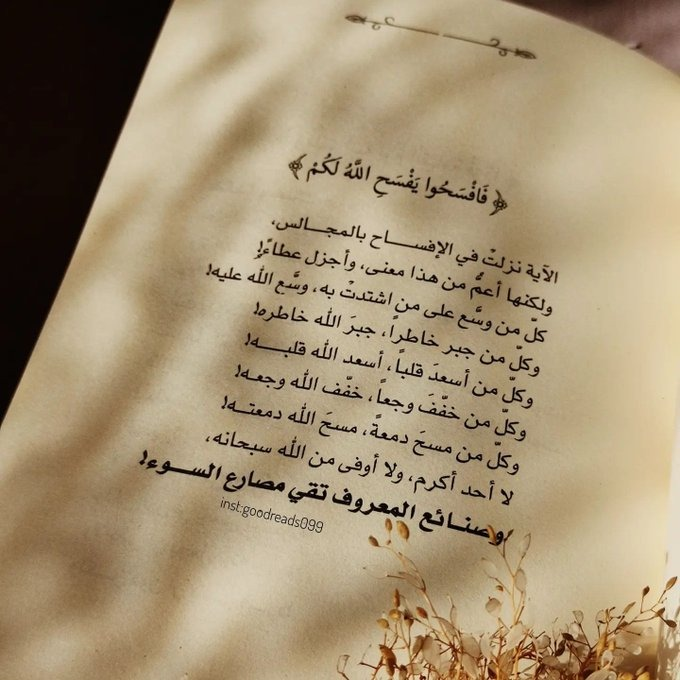 ﴿ فَافْسَحُوا يَفْسَحِ اللَّهُ لَكُمْ ﴾
الآية نزلتْ في الإفســـاح بالمجـالس،
ولكنها أعمُّ من هذا معنى، وأجزل عطاءً!
كلّ من وسَّع على من اشتدتْ به، وسَّع الله عليه!
وكلّ من جبر خاطراً، جبرَ الله خاطره!
وكلّ من أسعدَ قلباً، أسعد الله قلبــه!
وكلّ من خفّفَ وجعاً، خفّف الله وجعـه!
وكلّ من مسحَ دمعةً، مسحَ الله دمعتـه!
لا أحد أكرم، ولا أوفى من الله سبحانه،
وصنـائع المعروف تقي مصارع الســوء!
inst:goodreads099